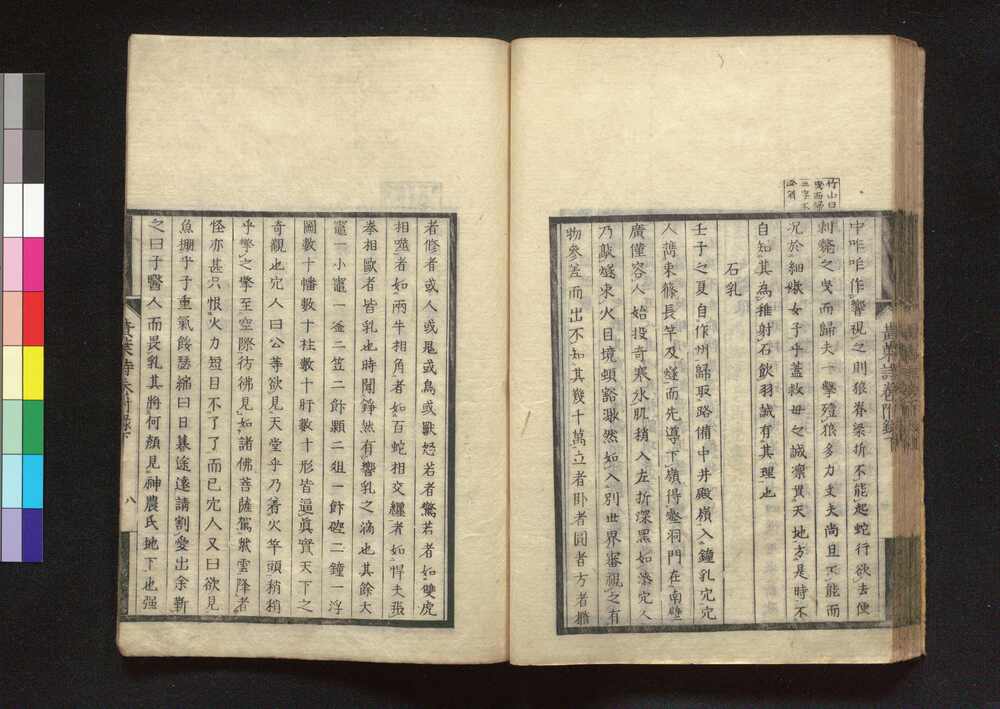 竹山曰
曳而歸
三字不
必削
中咋咋作響視之則狼脊梁折不能起蛇行欲去便
刺斃之曳而歸夫一擊殪狼多力丈夫尚且不能而
况於細嫰女子乎蓋救母之誠凛貫天地方是時不
自知其為稚射石飲羽誠有其理也
石乳
壬子之夏自作州歸取路備中井殿嶺入鐘乳穴穴
人雋束篠長竿及縫而先導下嶺得壑洞門在南壁
廣僅容人始投奇寒氷肌稍入左折深黒如漆穴人
乃敲燧束火目境頓豁瀏然如入別世界審視之有
物參差而出不知其幾千萬立者卧者圓者方者擔
者修者或人或鬼或鳥或獸怒若者驚若者如雙虎
相噬者如兩牛相角者如百蛇相交纒者如悍夫張
拳相歐者皆乳也時聞錚然有響乳之滴也其餘大
竈一小竈一釜二笠二餅顆二俎一餅磴二鐘一浮
圖數十幡數十柱數十肝數十形皆逼真實天下之
奇觀也穴人曰公等欲見天堂乎乃着火竿頭稍稍
乎擎之擎至空際彷彿見如諸佛菩薩駕紫雲降者
怪亦甚只恨火力短目不了了而已穴人又曰欲見
魚棚乎予重氣餒瑟縮曰日暮途遠請割愛出余靳
之曰子醫人而畏乳其將何顏見神農氏地下也强
黄葉詩卷附録下
八